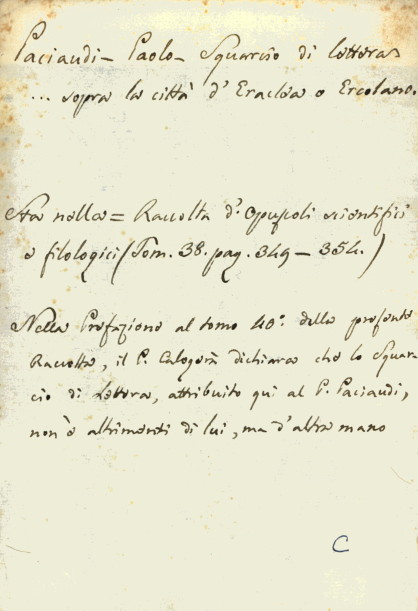 Paciaudi - Paolo - Squarcio di lettera
... sopra la città d'Eraclea o Ercolano.
Sta nella = Raccolta d'opuscoli scientifici
e filologici (Tom. 38. pag. 349 - 354.)
Nella Prefazione al tomo 40.º della presente
Raccolta, il P. Calogerà dichiara che lo Squar-
cio di Lettera, attribuito qui al P. Paciaudi,
non è altrimenti di lui, ma d'altra mano
C